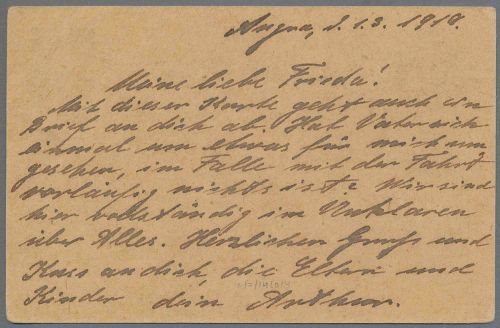 Angra, d. 1.3. 1919.
Meine liebe Frieda!
Mit dieser Karte geht auch ein
Brief an dich ab. Hat Vater sich
einmal um etwas für mich um
gesehen, im Falle mit der Fahrt
vorläufig nichts ist? Wir sind
hier vollständig im Unklaren
über Alles. Herzlichen Gruß und
Kuss an dich, die Eltern und
Kinder dein Arthur.